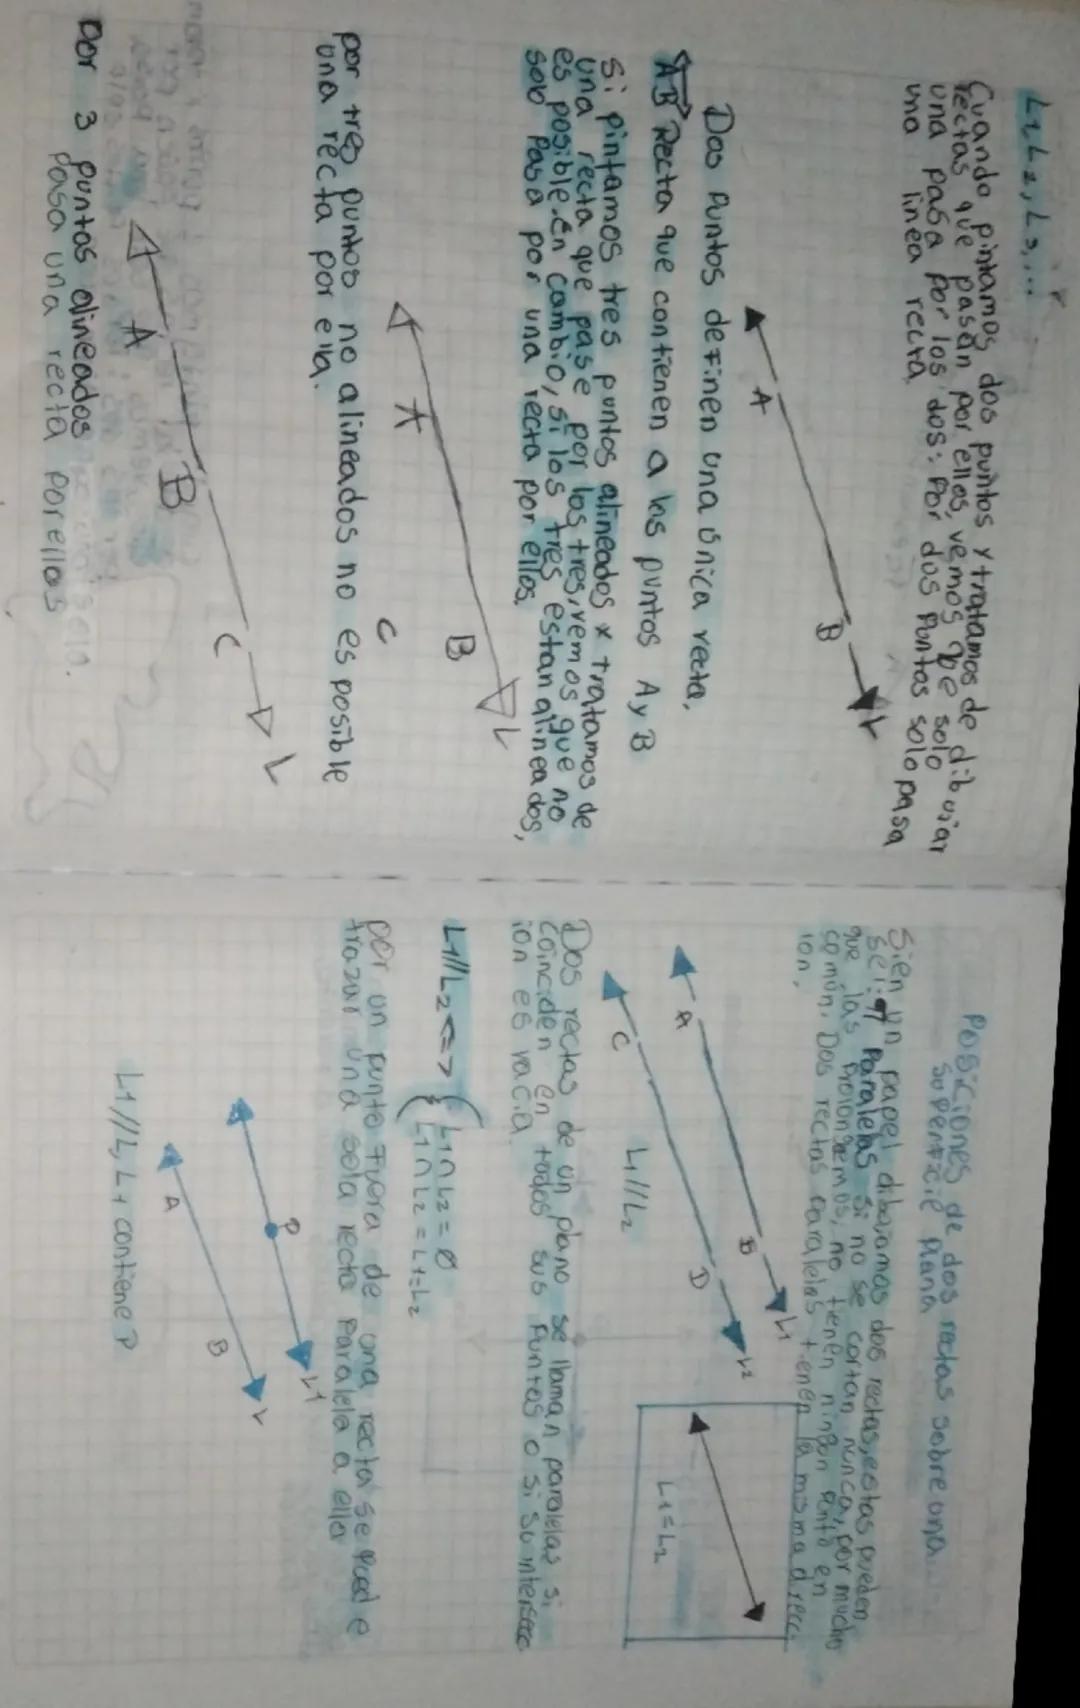 L1 L2, L3,...
Cuando pintamos dos puntos y tratamos de dibujar
rectas que pasan por ellos, vemos que solo
una pasa por los dos: Por dos Puntos solo pasa
una linea recta
A
B
L
Dos Puntos definen una única recta,
AB Recta que contienen a los puntos A y B
Si pintamos tres puntos alineados x tratamos de
una recta que pase por los tres, vemos que no
es posible. En cambio, si los tres estan alineados,
solo Pasa por una recta por ellos.
A
B
L
C
por tres puntos no alineados no es posible
una recta por ella.
A
B
C
L
Por 3 puntos alineados
Pasa una recta por ellos
Posiciones de dos rectas sobre una
superficie Plana
Si en un papel dibujamos dos rectas, estas pueden
ser: a) Paralelas si no se cortan nunca, por mucho
que las Prolonguemos, no tienen ningun Punto en
común. Dos rectas paralelas tienen la misma direcc-
ion.
A
B
L1
C
D
L2
L1//L2
L1=L2
Dos rectas de un plano se llaman paralelas si
coinciden en todos sus Puntos o si su intersecc
ion es vacia
L1//L2 <=> { L1∩L2 = Ø
L1∩L2 = L1=L2
Por un punto Fuera de una recta se puede
trazar una sola recta Paralela a ella
P
L1
A
B
L
L1//L, L1 contiene P